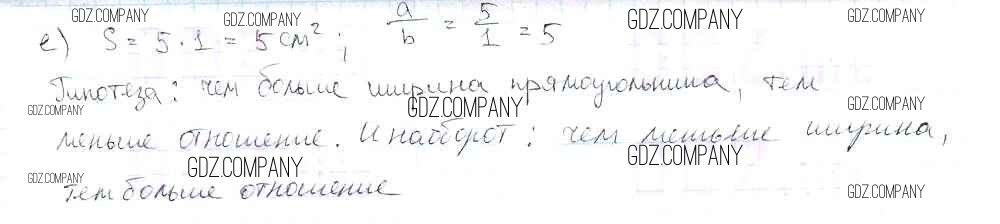 GDZ.COMPANY GDZ.COMPANY GDZ.COMPANY GDZ.COMPANY
е) S = 5 · 1 = 5 см² ; a/b = 5/1 = 5
Гипотеза: чем больше ширина прямоугольника, тем
GDZ.COMPANY GDZ.COMPANY GDZ.COMPANY GDZ.COMPANY
меньше отношение. И наоборот: чем меньше ширина,
GDZ.COMPANY GDZ.COMPANY GDZ.COMPANY GDZ.COMPANY
тем больше отношение